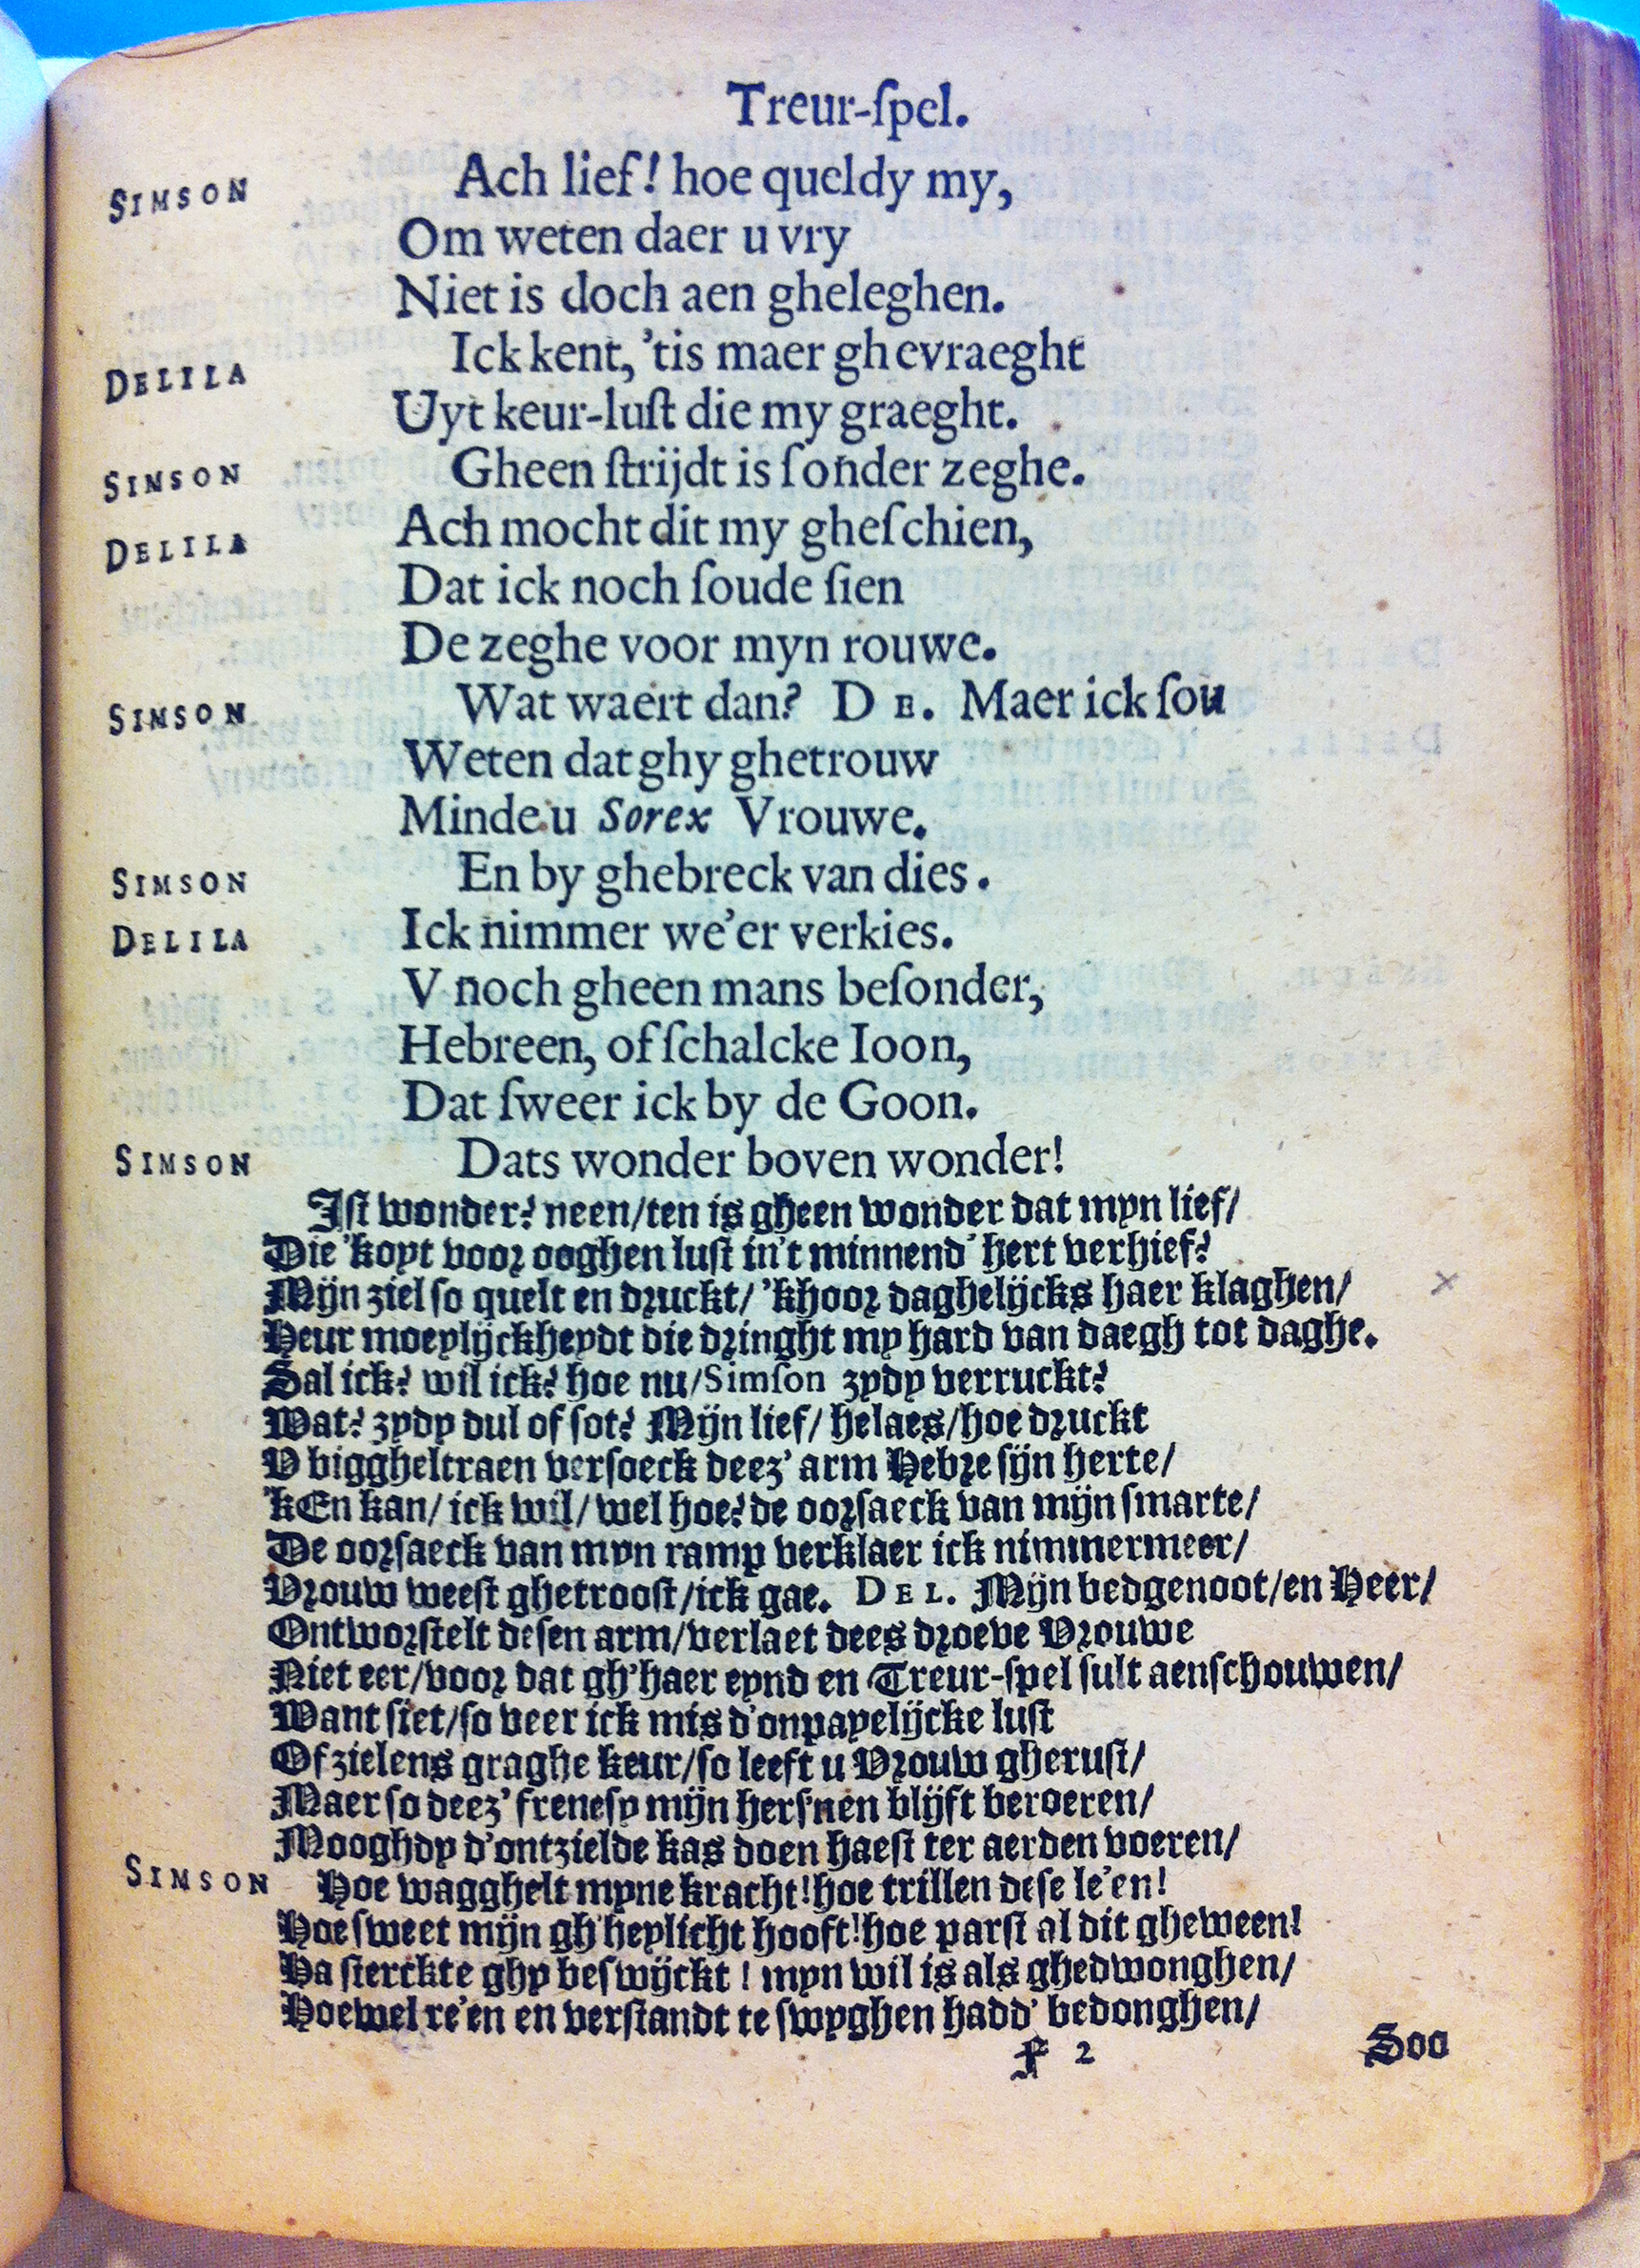 Treur-ſpel.
SIMSON Ach lief! hoe queldy my,
Om weten daer u vry
Niet is doch aen gheleghen.
DELILA Ick kent, 'tis maer ghevraeght
Uyt keur-luſt die my graeght.
SIMSON Gheen ſtrijdt is ſonder zeghe.
DELILA Ach mocht dit my gheſchien,
Dat ick noch ſoude ſien
De zeghe voor myn rouwe.
SIMSON Wat waert dan? DE. Maer ick ſou
Weten dat ghy ghetrouw
Minde u Sorex Vrouwe.
SIMSON En by ghebreck van dies.
DELILA Ick nimmer we'er verkies.
V noch gheen mans beſonder,
Hebreen, of ſchalcke Ioon,
Dat ſweer ick by de Goon.
SIMSON Dats wonder boven wonder!
Iſt wonder? neen/ten is gheen wonder dat myn lief/
Die 'koyt voor ooghen luſt in't minnend' hert verhief?
Mijn ziel ſo quelt en druckt/ 'khoor daghelijcks haer klaghen/
Heur moeylijckheydt die dringht my hard van daegh tot daghe.
Sal ick? wil ick? hoe nu/Simſon zydy verruckt?
Wat? zydy dul of ſot? Mijn lief/ helaes/hoe druckt
V biggheltraen verſoeck deez' arm Hebre ſijn herte/
'kEn kan/ ick wil/ wel hoe? de oorſaeck van mijn ſmarte/
De oorſaeck van myn ramp verklaer ick nimmermeer/
Vrouw weeſt ghetrooſt/ick gae. DEL. Mijn bedgenoot/en Heer/
Ontworſtelt deſen arm/verlaet dees droeve Vrouwe
Niet eer/voor dat gh'haer eynd en Treur-ſpel ſult aenſchouwen/
Want ſiet/ſo veer ick mis d'onpayelijcke luſt
Of zielens graghe keur/ſo leeft u Vrouw gheruſt/
Maer ſo deez' freneſy mijn herſ'nen blijft beroeren/
Mooghdy d'ontzielde kas doen haeſt ter aerden voeren/
SIMSON Hoe wagghelt myne kracht!hoe trillen deſe le'en!
Hoe ſweet mijn gh'heylicht hooft!hoe parſt al dit gheween!
Ha ſterckte ghy beſwijckt ! myn wil is als ghedwonghen/
Hoewel re'en en verſtandt te ſwyghen hadd' bedonghen/
F 2 Soo